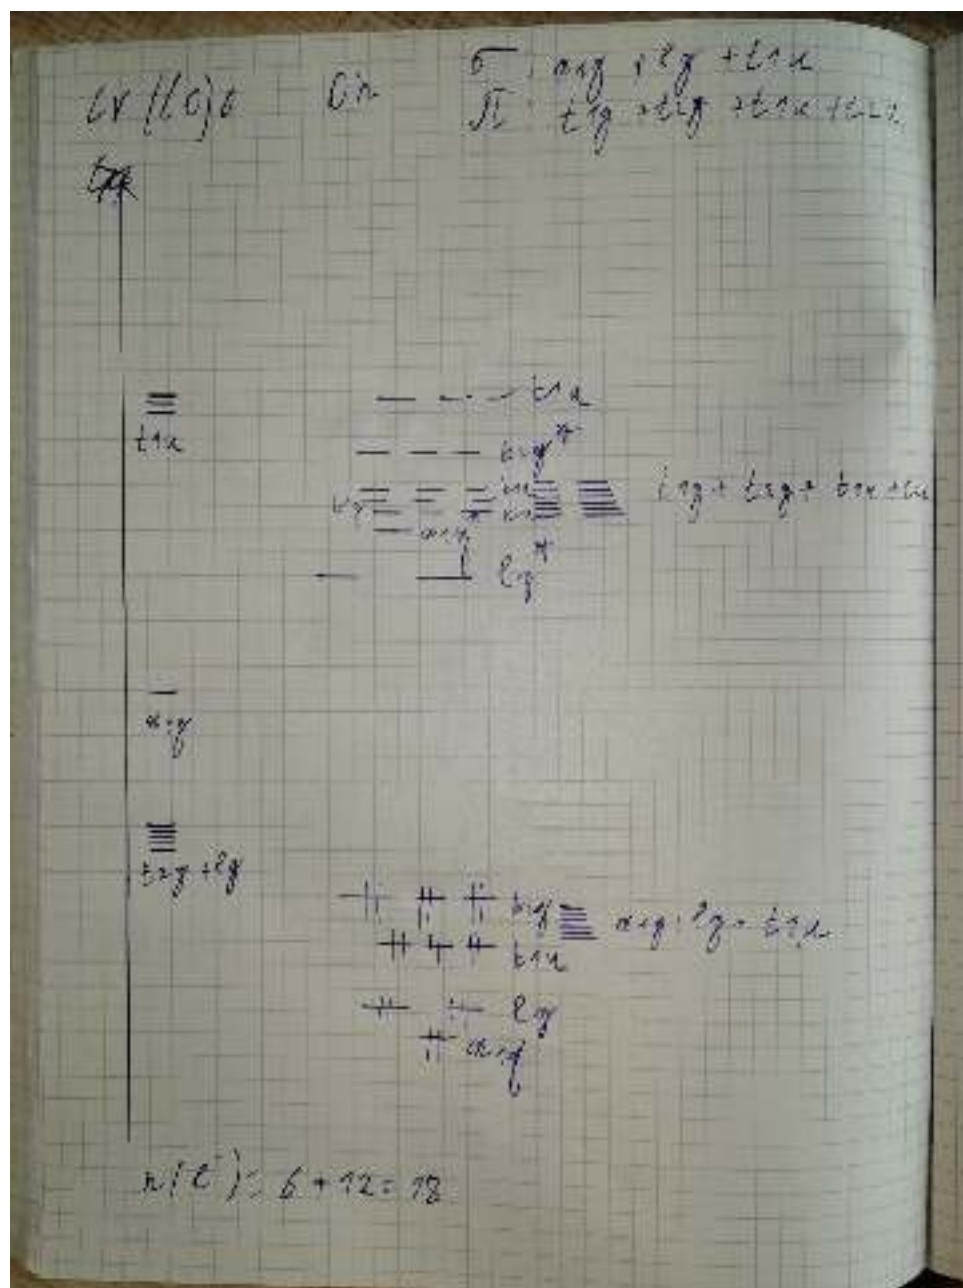 Cr(CO)6 Oh σ: a1g + eg + t1u
π: t1g + t2g + t1u + t2u
t1u
t1u
t2g*
t1g + t2g + t1u + t2u
a1g*
eg*
a1g
t2g + eg
t2g a1g + eg + t1u
t1u
eg
a1g
n(e⁻) = 6 + 12 = 18